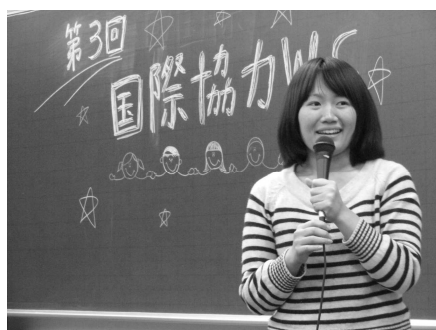 第3回
国際協力WS